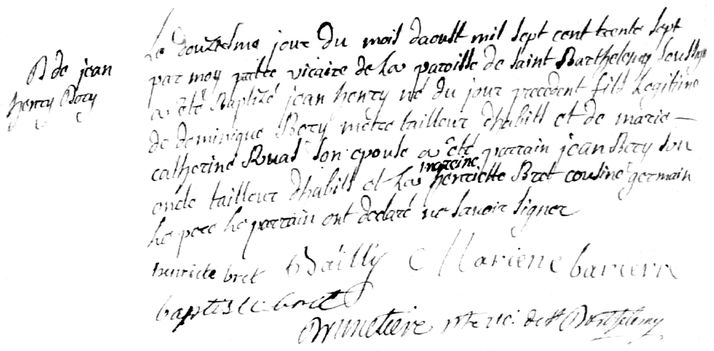 B de jean
henry Bery
Le douzesme jour du mois daoust mil sept cent trente sept
par moy prètre vicaire de la paroisse de saint Barthelemy soussigné
a été Baptizé jean henry né du jour precedent fils legitime
de dominique Bery mètre tailleur dhabits et de marie
catherine Ruas son epouse a été parrain jean Bery son
oncle tailleur dhabits et la mareine henriette Bret cousine germain
le pere le parrain ont declaré ne savoir signer
henriete bret Bailly Mariene
baptiste bret
Brunetiere ptre vic. de st Barthelemy